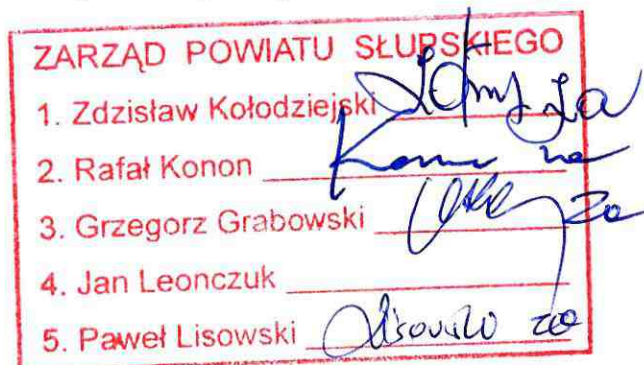 ZARZĄD POWIATU SŁUPSKIEGO
1. Zdzisław Kołodziejski
2. Rafał Konon za
3. Grzegorz Grabowski za
4. Jan Leonczuk
5. Paweł Lisowski Lisowski za